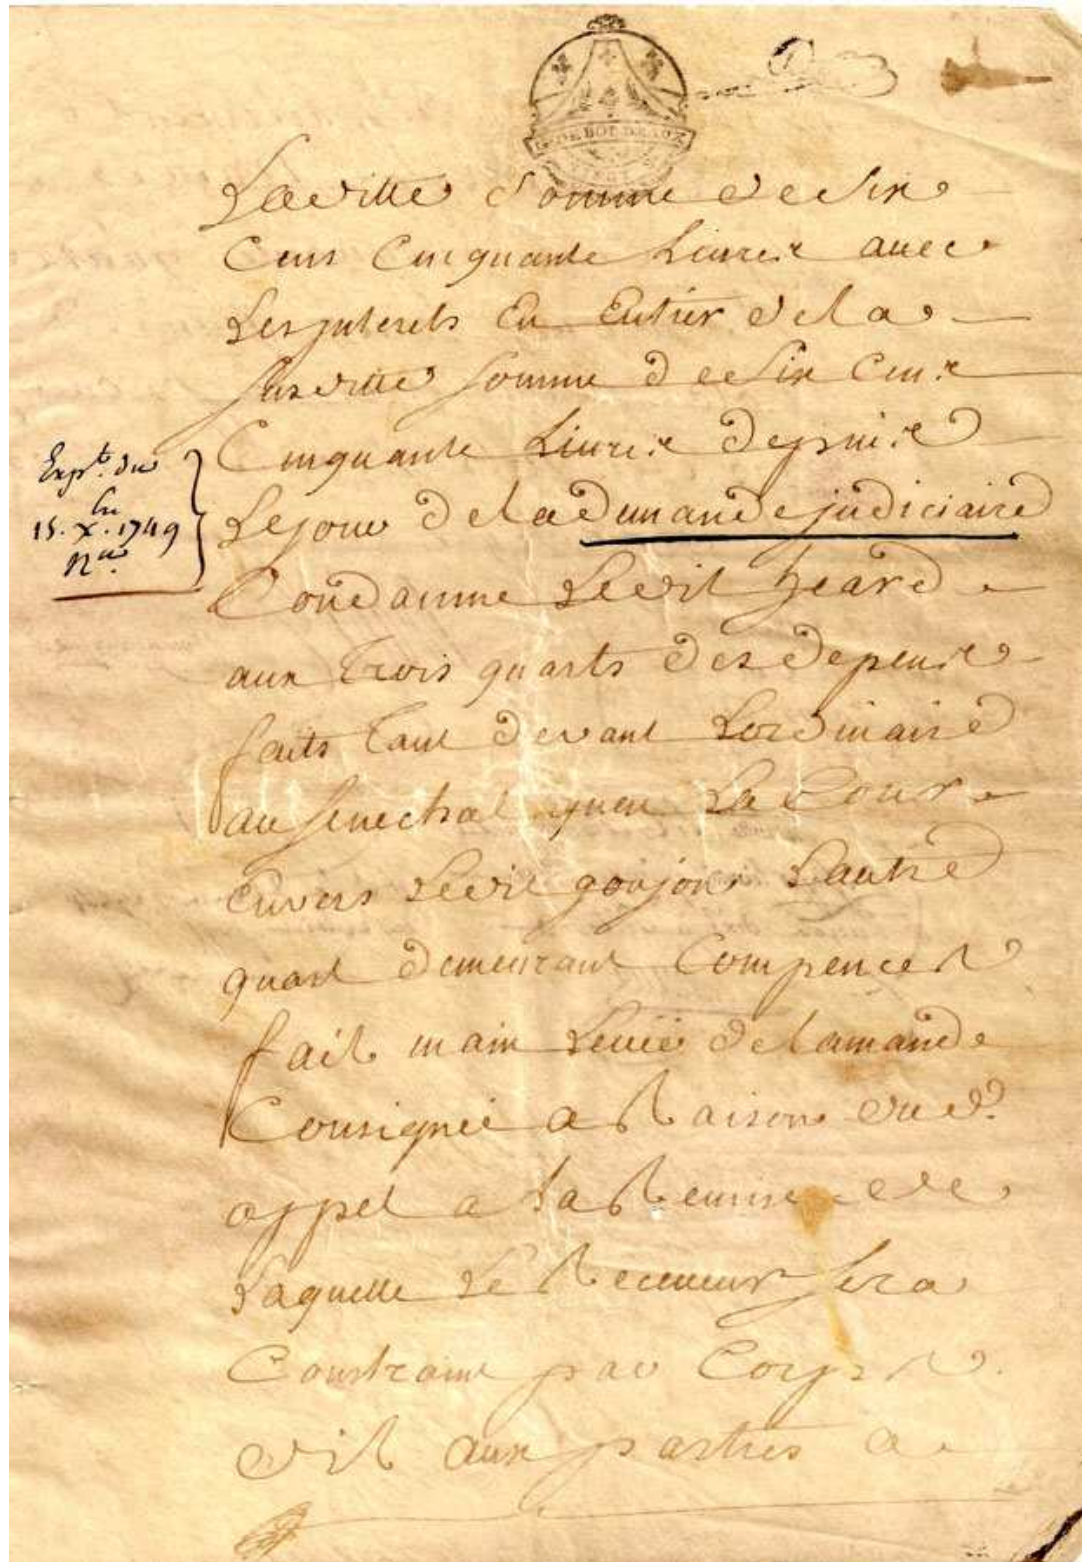 G. DE BORDEAUX
Laditte somme de Six
Cens Cinquante Livres avec
Les jnterets En Entier de la
susditte somme de Six Cens
Cinquante Livres depuis
Le jour de la demande judiciaire
Condamne Ledit heard
aux trois quarts des depens
faits tant devant Lordinaire
au senechal quen La Cour
Envers Ledit goujon Lautre
quart demeurant Compencé et
fait main Levée de lamande
Consignée a Raison dud.
appel a la Remise de
Laquelle Le Receveur sera
Constraint par Corps et
dit aux parties a
Expt. du
15. X. 1749